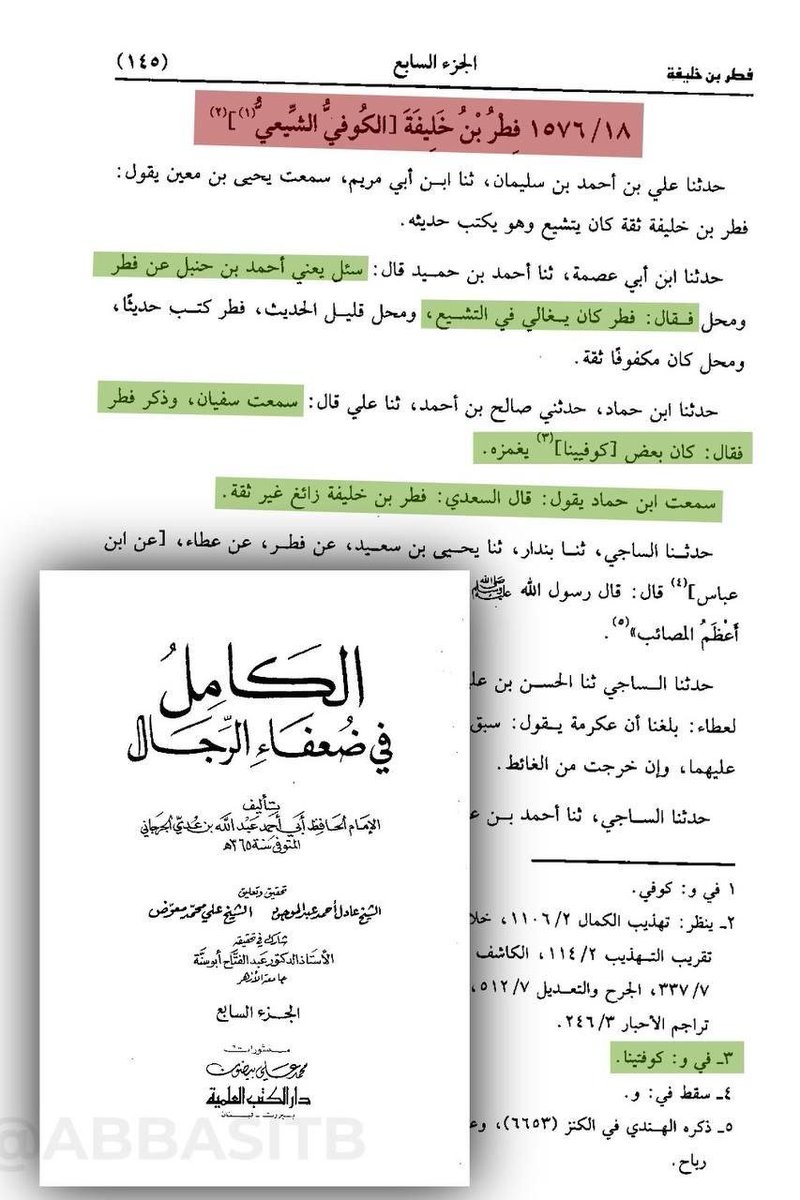 فطر بن خليفة
الجزء السابع
(١٤٥)
١٨/ ١٥٧٦ فِطْرُ بْنُ خَلِيفَةَ [الكُوفيُّ الشِّيعيُّ(١)](٢)
حدثنا علي بن أحمد بن سليمان، ثنا ابـن أبي مريم، سمعت يحيى بن معين يقول:
فطر بن خليفة ثقة كان يتشيع وهو يكتب حديثه.
حدثنا ابن أبي عصمة، ثنا أحمد بن حمـيد قال: سئل يعني أحمد بن حنبل عن فطر
ومحل فـقال: فطر كان يـغالي في التشـيع، ومحل قليـل الحديث، فطر كتـب حديثًا،
ومحل كان مكفوفًا ثقة.
حدثنا ابن حماد، حدثني صالح بن أحمد، ثنا علي قال: سمعت سفيان، وذكر فطر
فقال: كان بعض [كوفيينا](٣) يغمزه.
سمعت ابن حماد يقول: قال السعدي: فطر بن خليفة زائغ غير ثقة.
حدثـنا الساجي، ثنـا بندار، ثنا يحيـى بن سعيد، عن فطـر، عن عطاء، [عن ابن
عباس](٤) قال: قال رسول الله ﷺ
أَعْظَمُ المصائب»(٥).
حدثنا الـساجي ثنا الحسـن بن
لعطاء: بلغنا أن عكرمة يـقول: سبق
عليهما، وإن خرجت من الغائط.
حدثنا الساجي، ثنا أحمد بـن
١ في و: كوفي.
٢ـ ينظر: تهذيب الكمال ١١٠٦/٢،
تقريب التـهذيب ١١٤/٢، الكاشف
٣٣٧/٧، الجرح والتعديل ٥١٢/٧،
تراجم الأحبار ٢٤٦/٣.
٣ـ في و: كوفتينا.
٤ـ سقط في: و.
٥ـ ذكره الهندي في الكنز (٦٦٥٣)،
رباح.
الكَامِلُ
في ضُعفَاءِ الرِّجَال
تأليف
الإمام الحافظ أبي أحمد عبد الله بن عدي الجرجاني
المتوفى سنة ٣٦٥هـ
تحقيق وتعليق
الشيخ عادل أحمد عبد الموجود الشيخ علي محمد معوض
شارك في تحقيقه
الأستاذ الدكتور عبد الفتاح أبو سنة
جامعة الأزهر
الجزء السابع
منشورات
محمد علي بيضون
دار الكتب العلمية
بيروت - لبنان
@ABBASITB